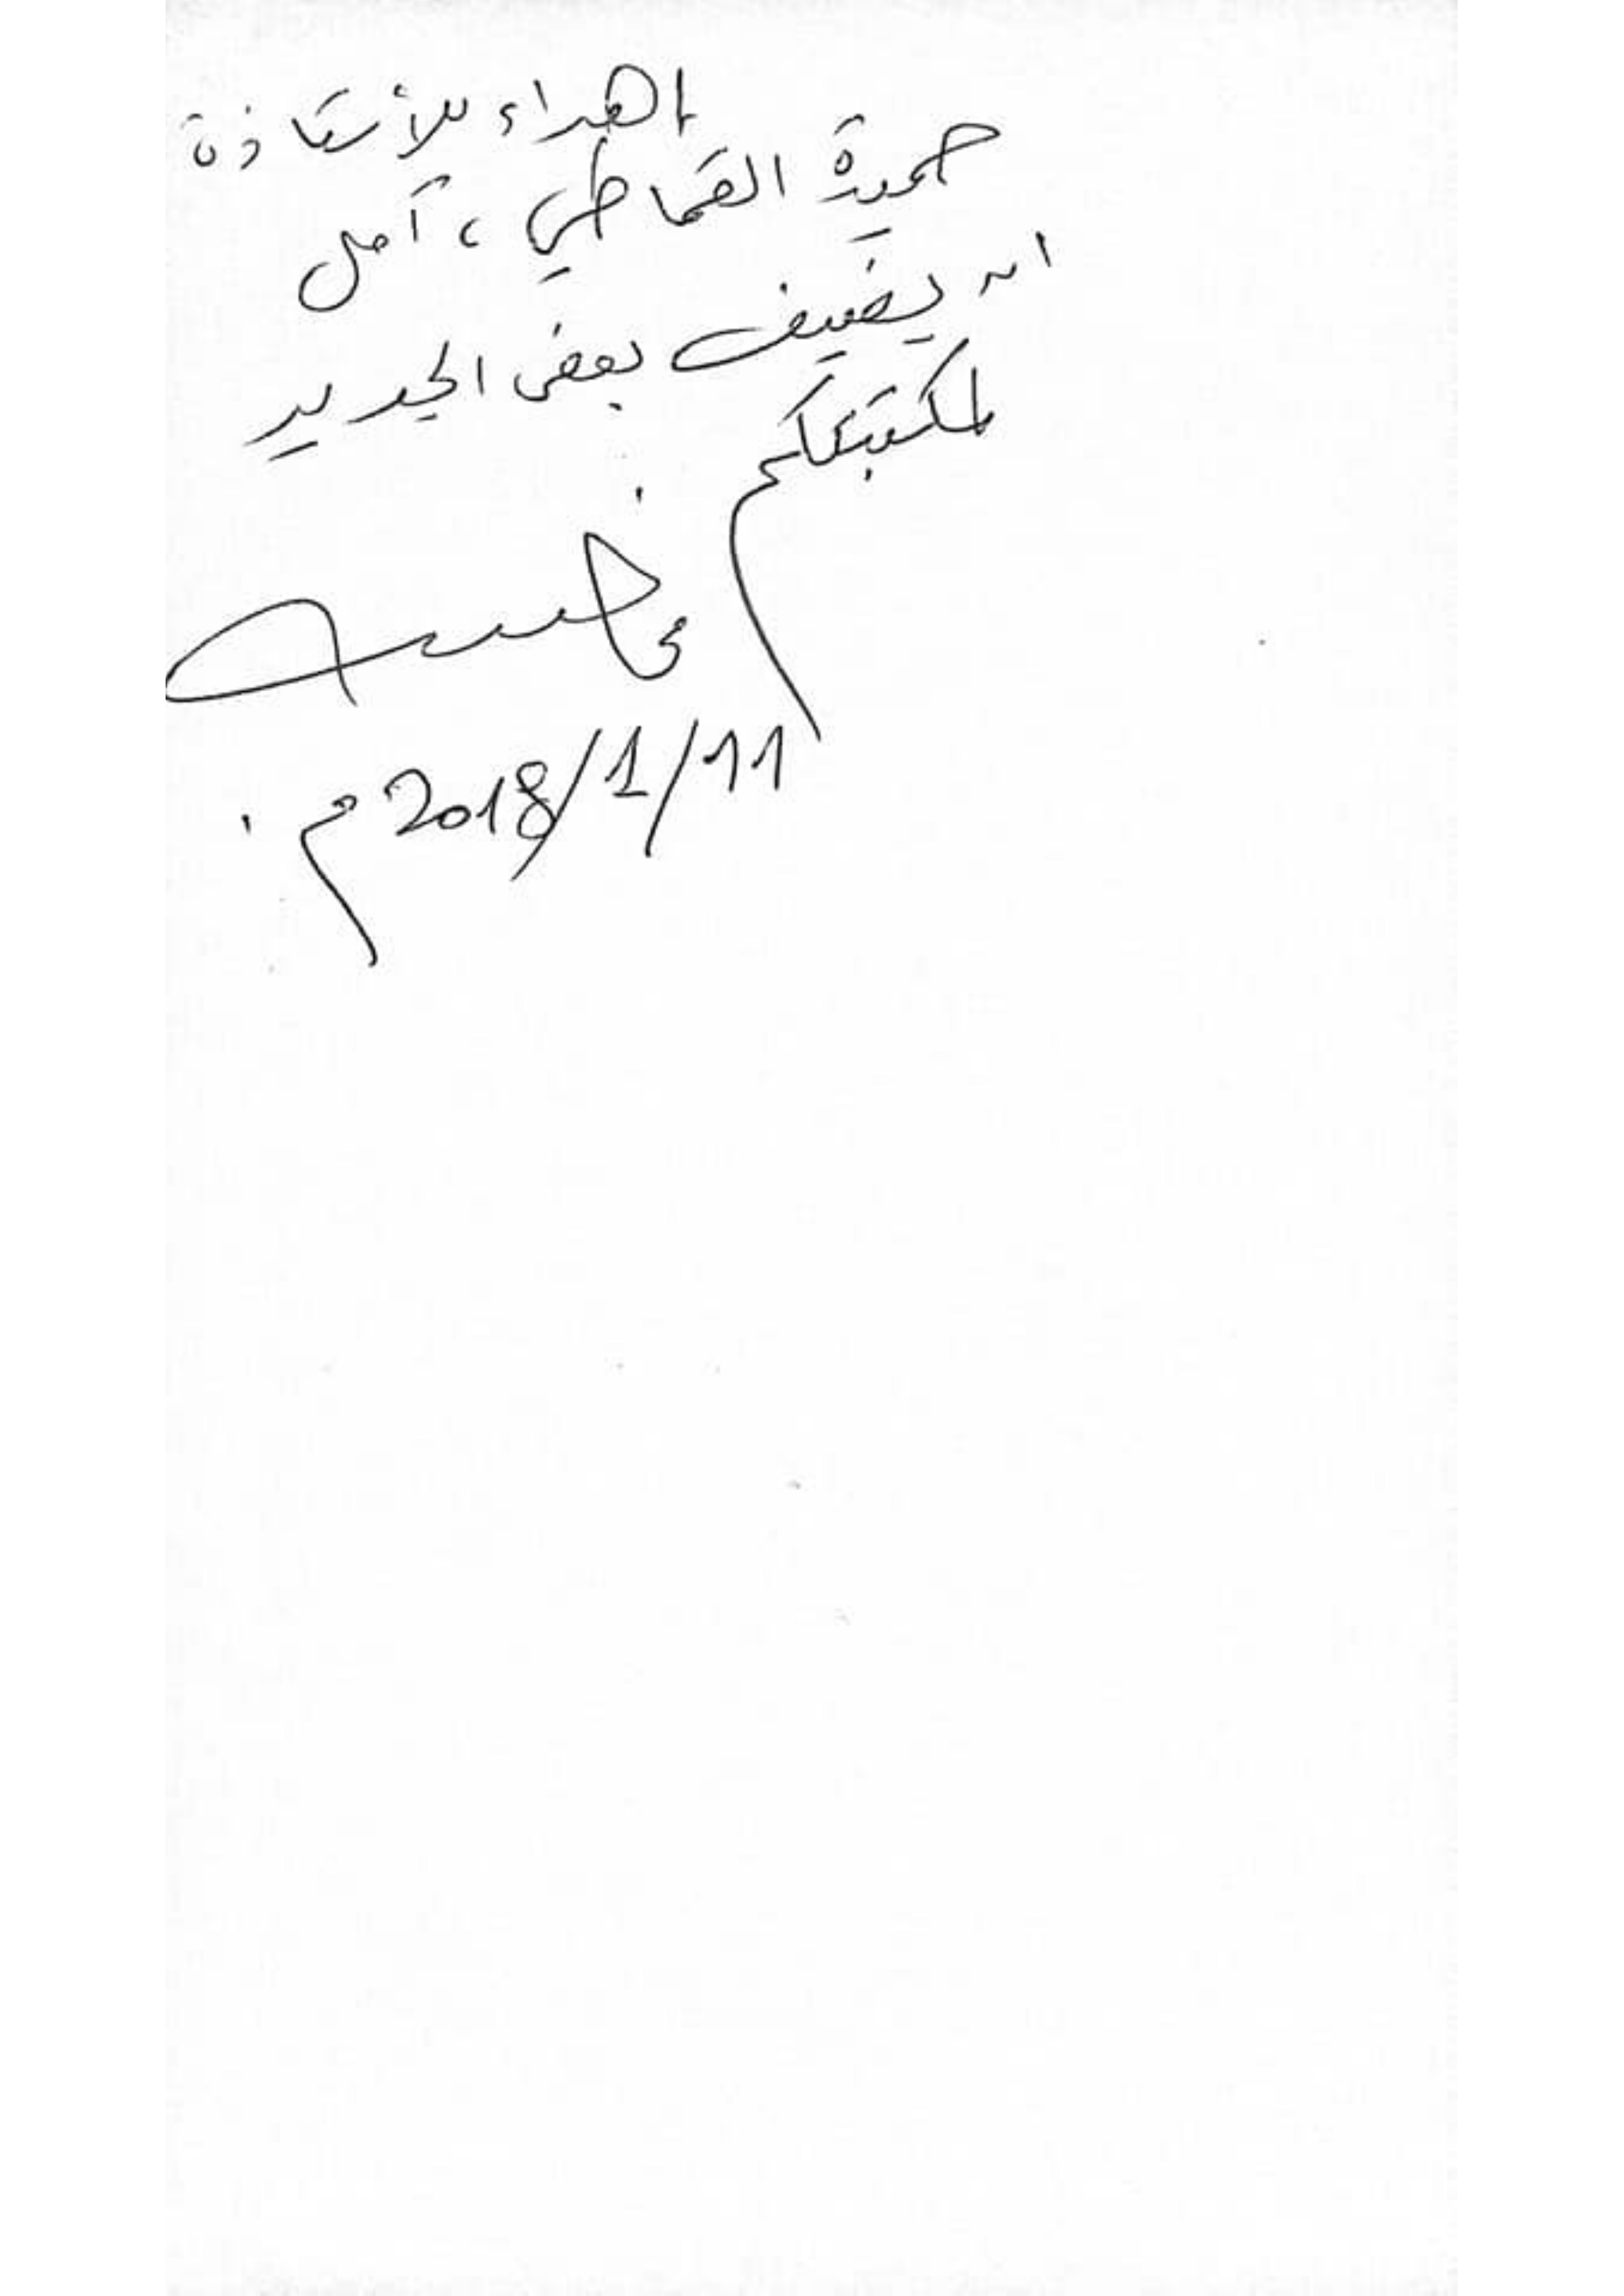 إهداء للأستاذة
حميدة القماطي ، آمل
ان يضيف بعض الجديد
لمكتبتكم
2018/1/11 م.